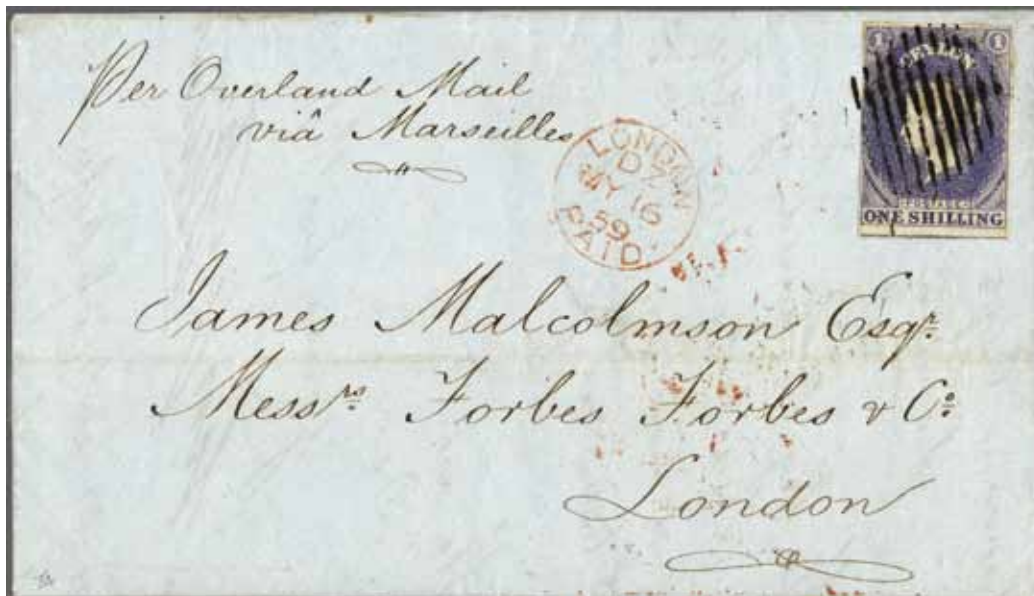 Per Overland Mail
viâ Marseilles
1 CEYLON 1
POSTAGE
ONE SHILLING
LONDON
DZ
MY 16
59
PAID
James Malcolmson Esqr.
Messrs Forbes Forbes & Co.
London